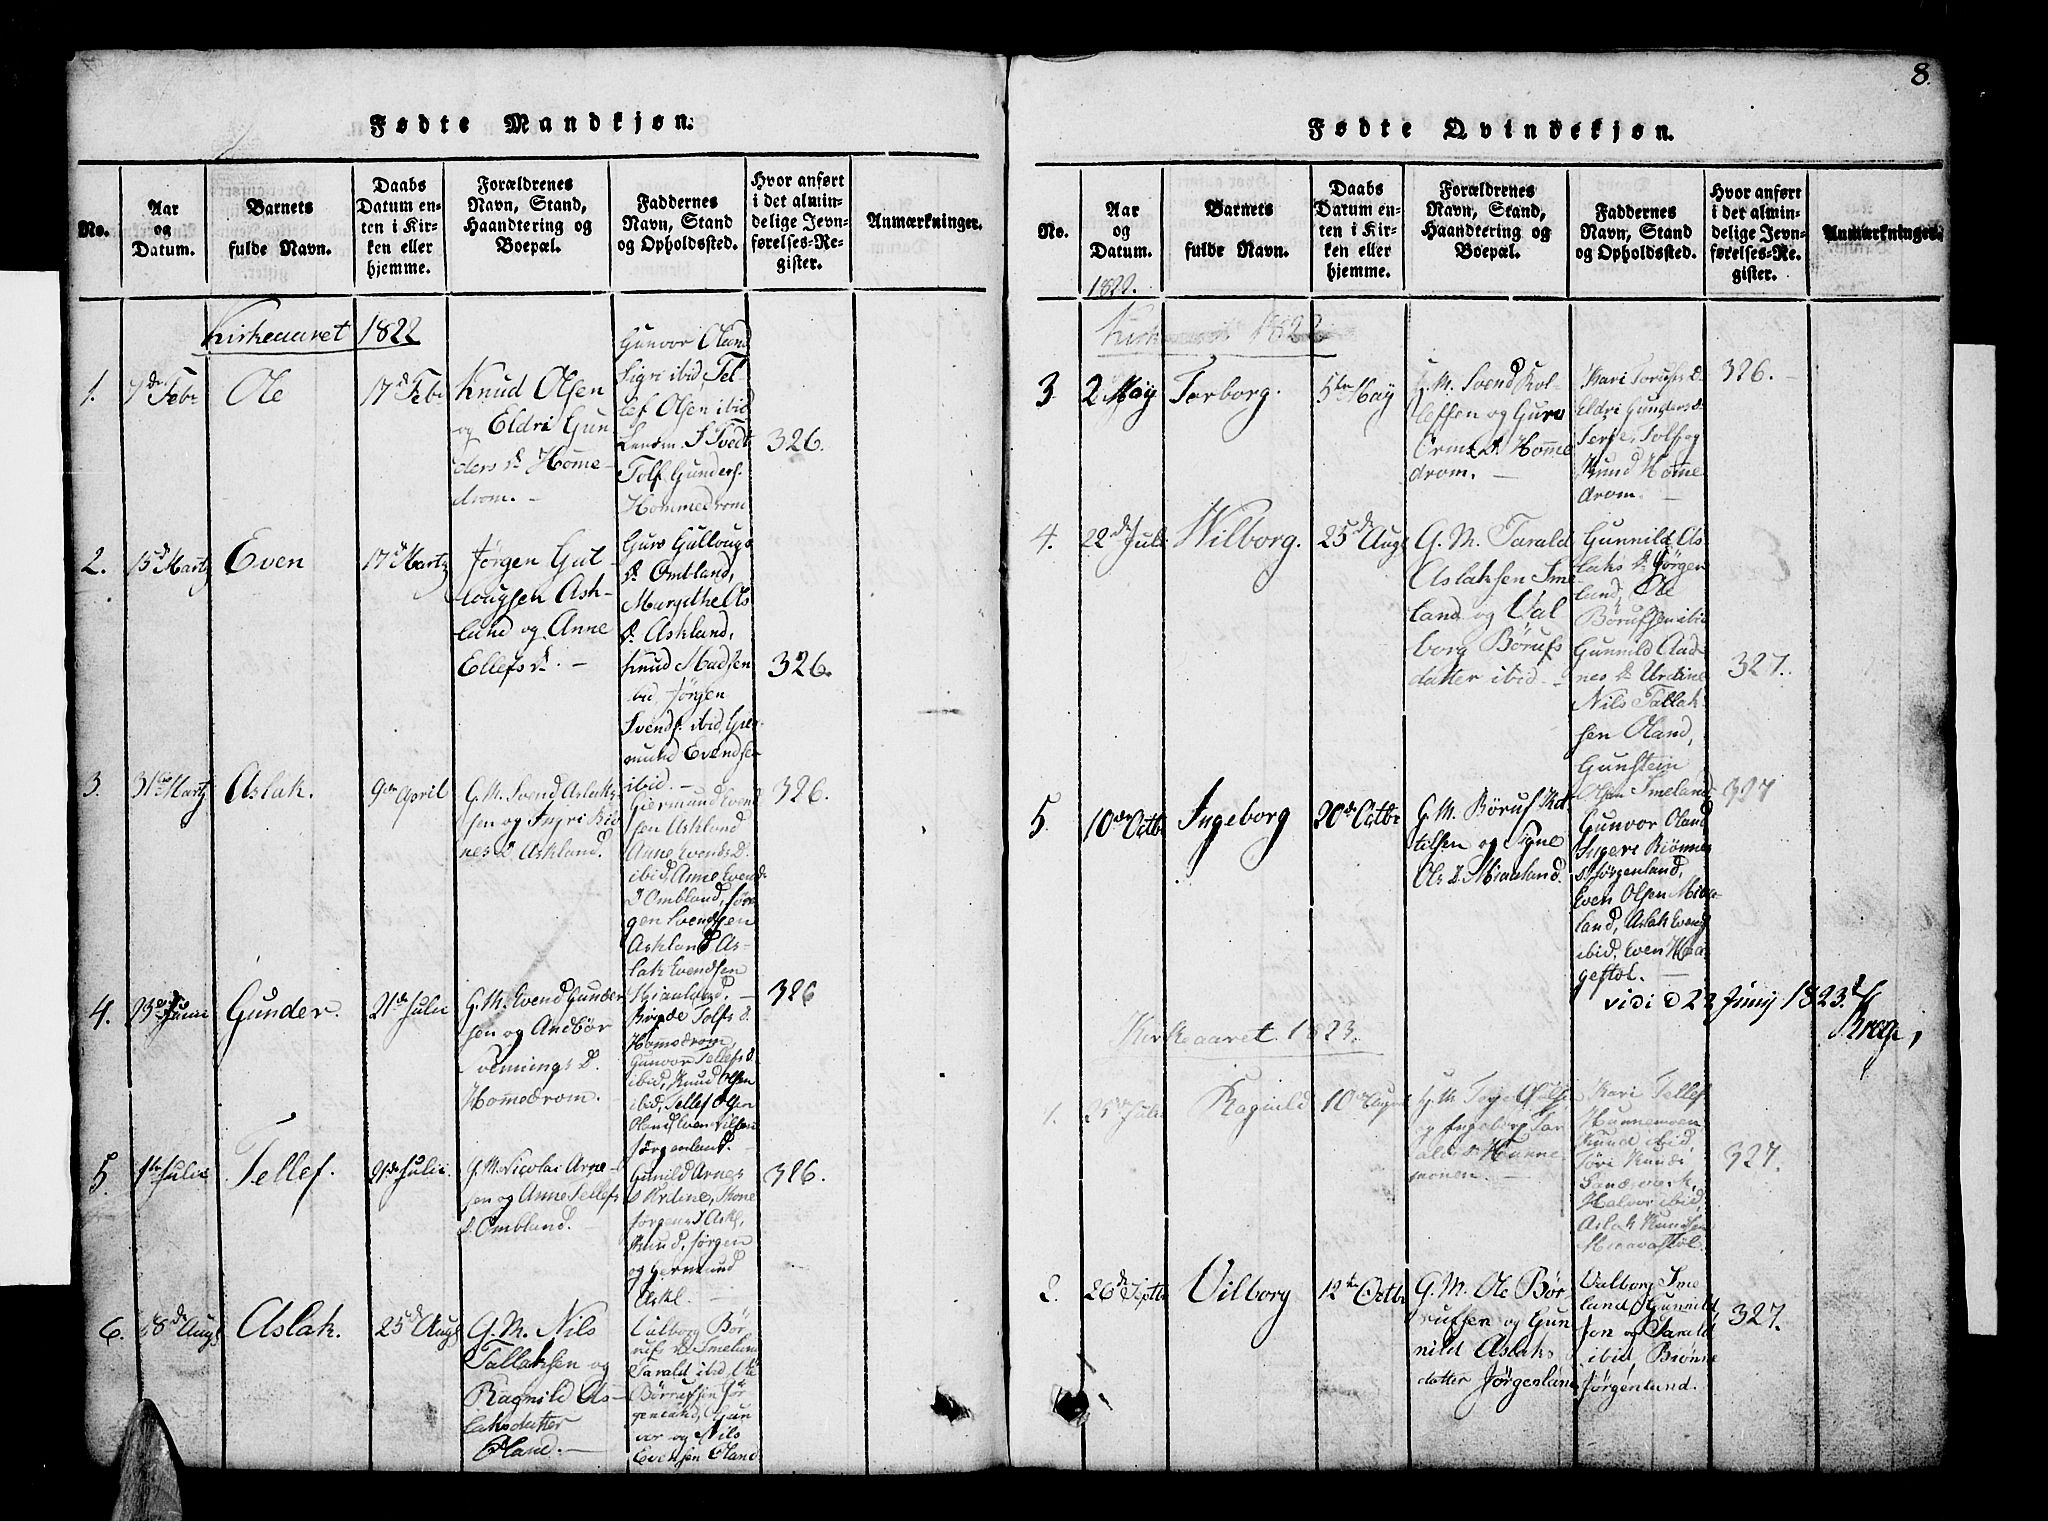 8.
Fødte Mandkjøn.
No.
Aar
og
Datum.
Barnets
fulde Navn.
Daabs
Datum en-
ten i Kir-
ken eller
hjemme.
Forældrenes
Navn, Stand,
Haandtering og
Boepæl.
Faddernes
Navn, Stand
og Opholdssted.
Hvor anført
i det almin-
delige Jevn-
førelses-Re-
gister.
Anmærkninger.
Kirkeaaret 1822
1.
7de Febr
Ole
17d Febr
Knud Olsen
og Eldri Gun-
ders D. Homme-
drom. -
Gunvor Oland
Sigri ibid Tel-
lef Olsen ibid
Tvedt
Tolf Gunders.
Hommedrom
326.
2.
15d Martz
Even
17d Martz
Jørgen Gul-
lougsen Ask-
land og Anne
Ellefs D. -
Guro Gullougs
D. Omland,
Margithe Ols
D. Askland,
Knud Madsen
ibid Jørgen
Svends. ibid, Gier-
mund Evendsen
ibid. -
326.
3.
31te Martz
Aslak.
9de April
G. M. Svend Aslak-
sen og Ingri Biø
nes D. Askland.
Giermund Evend
sen Askland
Anne Evends D.
ibid, Anne Evend
D Ombland, Jør-
gen Svendsen
Askland As-
lak Evendsen
Miaaland. -
326.
4.
23de Junii
Gunder.
21de Julii
G. M. Evend Gunder
sen og Andbør
Svennings D.
Homedrom. -
Birgde Tolfs D.
Homedrom,
Gunvor Tellefs D
ibid, Knud Olsen
ibid, Tellef Olsen
Oland Even Nilsen
Jørgenland. -
326
5.
1te Julii
Tellef.
21de Julii
G. M. Nicolai Arne-
sen og Anne Tellefs
D. Ombland. -
Gunild Arnes
D Urdine, Tone
Jørgens D Askl,
Knud, Jørgen
og Germund
Askl. -
326.
6.
18de Augs
Aslak.
25d Augs
G. M. Nils
Tallaksen og
Ragnild As-
laksdatter
Oland. -
Valborg Bør-
ufs D. Imeland
Tarald ibid Ole
Børrufsen Jør
genland, Gun
vor og Nils
Evensen Oland
Fødte Qvindekjøn.
No.
Aar
og
Datum.
Barnets
fulde Navn.
Daabs
Datum en-
ten i Kir-
ken eller
hjemme.
Forældrenes
Navn, Stand,
Haandtering og
Boepæl.
Faddernes
Navn, Stand
og Opholdssted.
Hvor anført
i det almin-
delige Jevn-
førelses-Re-
gister.
Anmærkninger.
1822.
Kirkeaaret 1822
3
2 May
Torborg.
5te May
G. M. Svend Rol-
lefsen og Guro
Orms D. Homme
drom. -
Kari Torufs D.
Eldri Gunders D.
Terje, Tolf og
Knud Homme
drom. -
326. -
4.
22de Juli
Wilborg.
25de Augs
G. M. Tarald
Aslaksen Ime
land og Val
borg Børufs
datter ibid -
Gunnild As
laks D. Jørgen
land, Ole
Børufsen ibid
Gunnild Aad-
nes D. Urdine
Nils Tallak
sen Oland,
Gunstein
Olsen Imeland
327.
5
10de Octbr
Ingeborg
20de Octbr
G. M. Børuf Ket
telsen og Signe
Ols D. Miaaland.
Gunvor Oland
Ingere Biønne
D. Jørgenland,
Even Olsen Miaa-
land, Aslak Evends
ibid, Even Haa-
gestøl. -
327
vidi d 23 Junij 1823.
Krog,
Kirkeaaret 1823.
1.
25de Juli
Ragnild
10de August
G. M. Terje Olsen
og Ingeborg Tar
alds D. Hunne
monen. -
Kari Tellef
Hunnemoen
Knud ibid
Tøri Knuds
Sandsmerk,
Halvor ibid,
Aslak Knudsen
Meeavastøl.
327.
2.
26de Septbr
Vilborg
12te Octbr
G. M. Ole Bør-
rufsen og Gun
nild Aslaks
datter Jørgenland
Valborg Ime
land, Gunnild
Jon og Tarald
ibid, Brønne
Jørgenlund.
327.